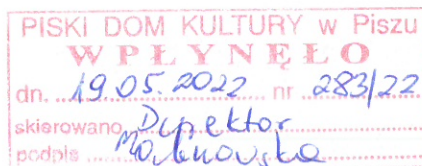 PISKI DOM KULTURY w Piszu
WPŁYNĘŁO
dn. 19.05.2022 nr 283/22
skierowano Dyrektor
podpis Malinowska